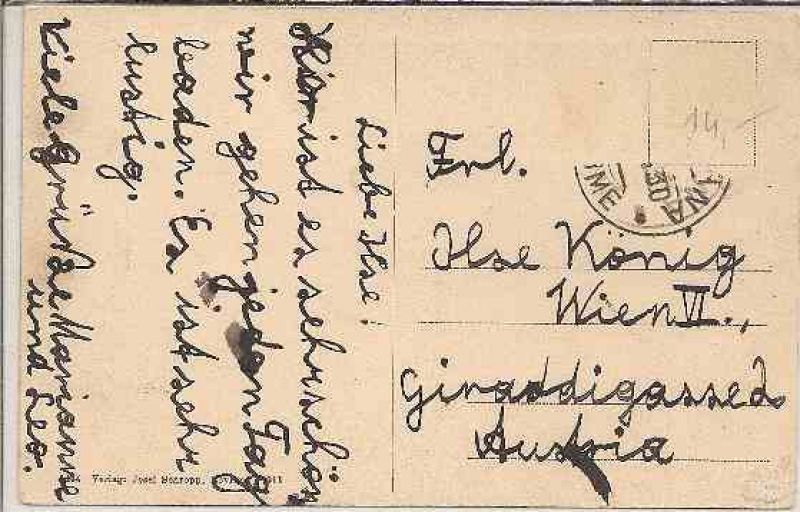 Liebe Ilse!
Hier ist es sehr schön
wir gehen jeden Tag
baden. Es ist sehr
lustig.
Viele Grüße Marianne
und Leo.
14,-
Frl.
Ilse König
Wien VI.,
Giraddigasse
Austria
Verlag: Josef